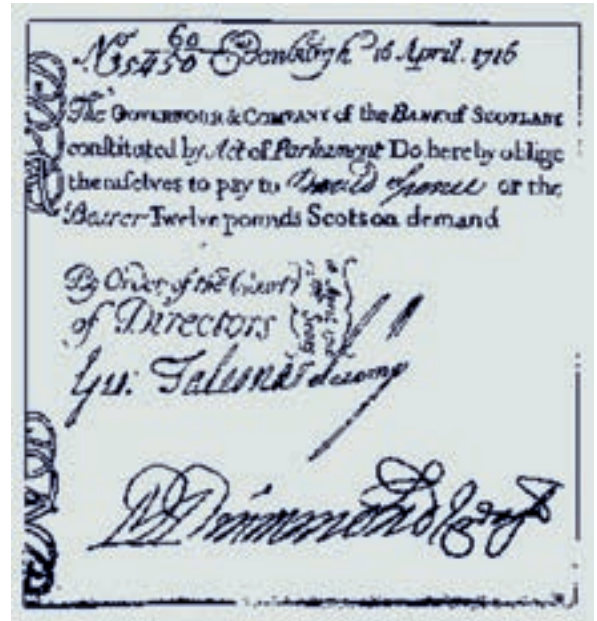 No 35430 60/ Edenburgh 16 April. 1716
The GOVERNOUR & COMPANY of the BANK of SCOTLAND
constituted by Act of Parliament Do hereby oblige
themselves to pay to David Spence or the
Bearer Twelve pounds Scots on demand
By Order of the Court
of Directors
Drummond